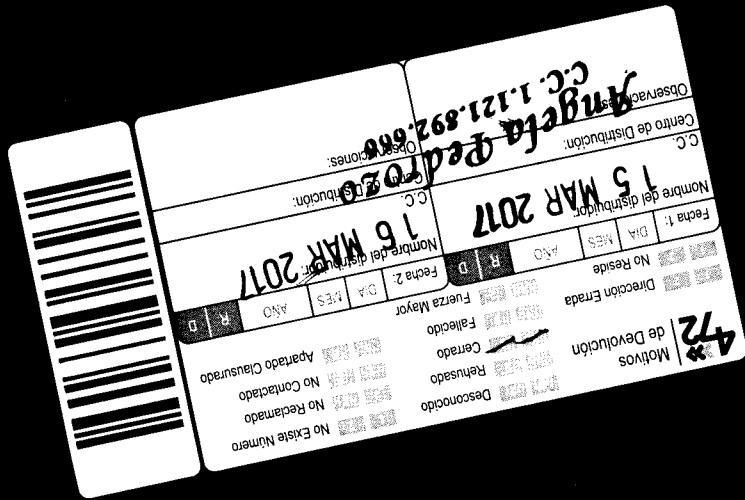 472
Motivos de Devolución
Desconocido
Rehusado
Cerrado
Fallecido
Fuerza Mayor
No Existe Número
No Reclamado
No Contactado
Apartado Clausurado
Dirección Errada
No Reside
Fecha 1: DIA MES AÑO R D
15 MAR 2017
Nombre del distribuidor:
C.C.
Centro de Distribución:
Observaciones:
Fecha 2: DIA MES AÑO R D
16 MAR 2017
Nombre del distribuidor:
C.C.
Centro de Distribución:
Observaciones:
Angela Pedrozo
C.C. 1.121.892.666